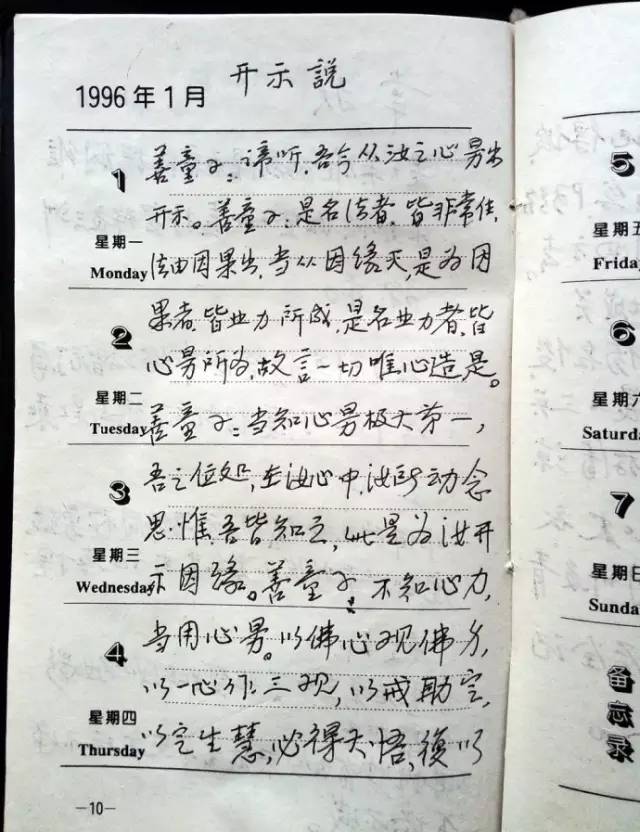 开示說
1996年1月
1
善童子:谛听,吾今从汝之心易出
开示。善童子:是名法者,皆非常住,
星期一
Monday
法由因果出,当从因缘灭,是为因
2
果者,皆业力所成,是名业力者,皆
心易所为,故言一切唯心造是。
星期二
Tuesday
善童子:当知心易极大第一,
3
吾之位处,在汝心中,汝所动念
思惟,吾皆知之,此是为汝开
星期三
Wednesday
示因缘。善童子:不知心力,
4
当用心易。以佛心观佛身,
以一心作三观,以戒助定,
星期四
Thursday
以定生慧,必得大悟,後以
—10—
5
星期五
Friday
6
星期六
Saturd
7
星期日
Sunda
备忘录